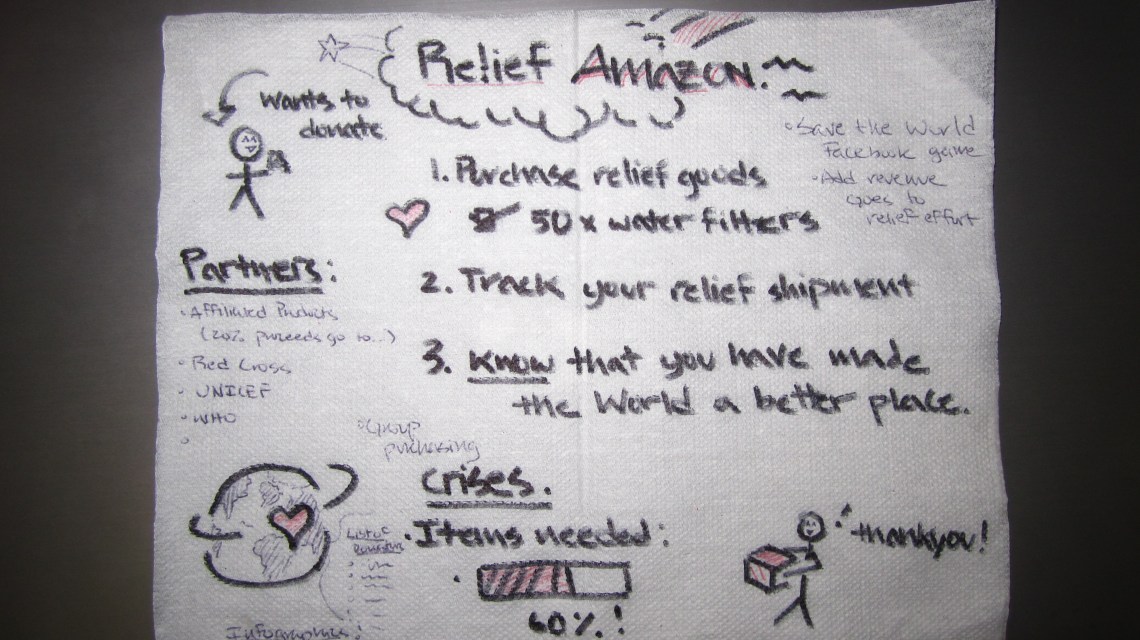 Relief Amazon.
Wants to
donate
• Save the World
Facebook game
• Add revenue
goes to
relief effort
1. Purchase relief goods
50 x water filters
2. Track your relief shipment
3. Know that you have made
the World a better place.
Partners:
• Affiliated Products
(20% proceeds go to...)
• Red Cross
• UNICEF
• WHO
• Group
purchasing
Crises.
• Items needed:
60%!
List of
thankyou!
Infographics!